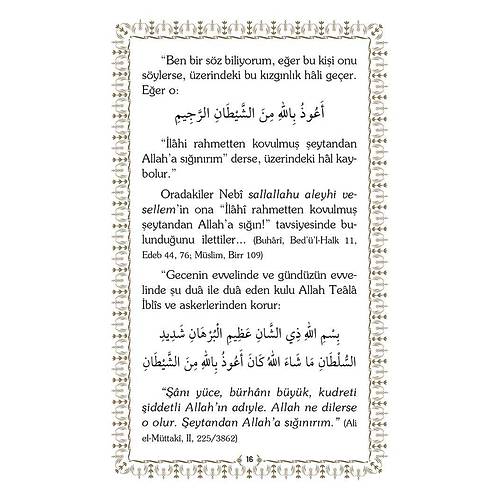 “Ben bir söz biliyorum, eğer bu kişi onu
söylerse, üzerindeki bu kızgınlık hâli geçer.
Eğer o:
أَعُوذُ بِاللهِ مِنَ الشَّيْطَانِ الرَّجِيمِ
“İlâhi rahmetten kovulmuş şeytandan
Allah’a sığınırım” derse, üzerindeki hâl kay-
bolur.”
Oradakiler Nebî sallallahu aleyhi ve-
sellem’in ona “İlâhî rahmetten kovulmuş
şeytandan Allah’a sığın!” tavsiyesinde bu-
lunduğunu ilettiler... (Buhârî, Bed’ü’l-Halk 11,
Edeb 44, 76; Müslim, Birr 109)
“Gecenin evvelinde ve gündüzün evve-
linde şu duâ ile duâ eden kulu Allah Teâlâ
İblîs ve askerlerinden korur:
بِسْمِ اللهِ ذِي الشَّانِ عَظِيمِ الْبُرْهَانِ شَدِيدِ
السُّلْطَانِ مَا شَاءَ اللهُ كَانَ أَعُوذُ بِاللهِ مِنَ الشَّيْطَانِ
“Şânı yüce, bürhânı büyük, kudreti
şiddetli Allah’ın adıyle. Allah ne dilerse
o olur. Şeytandan Allah’a sığınırım.” (Ali
el-Müttakî, II, 225/3862)
16